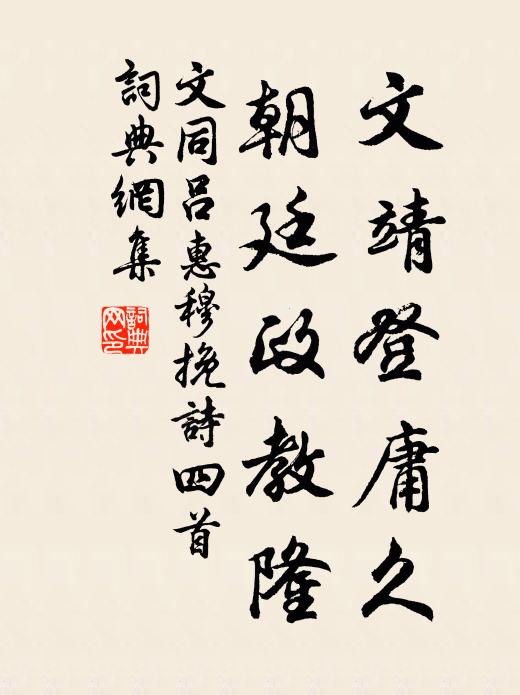 文靖登庸久
朝廷政教隆
文同呂惠穆挽詩四首
詞典網集
詞典网印